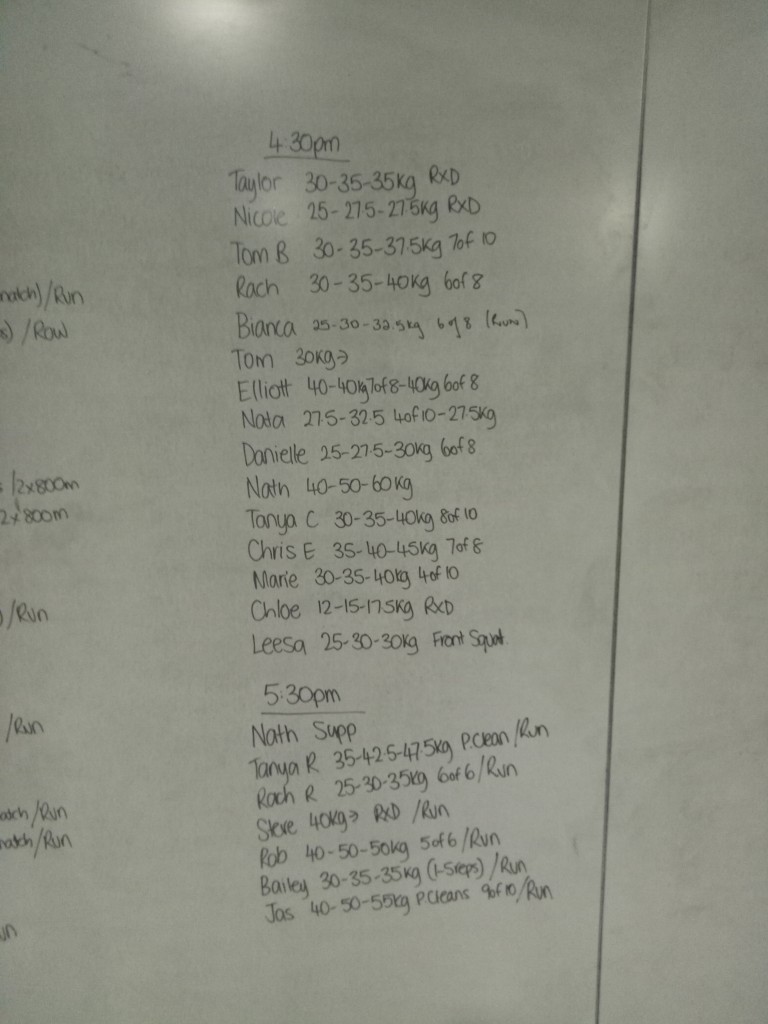 4:30pm
Taylor 30-35-35kg RXD
Nicole 25-27.5-27.5kg RXD
Tom B 30-35-37.5kg 7of 10
Rach 30-35-40kg 6of 8
natch)/Run
Bianca 25-30-32.5kg 6 of 8 (Runs)
s) /Row
Tom 30kg→
Elliott 40-40kg7of8-40kg6of8
Nata 27.5-32.5 4of10-27.5kg
Danielle 25-27.5-30kg 6of8
/2x800m
Nath 40-50-60kg
2x800m
Tanya C 30-35-40kg 8of 10
Chris E 35-40-45kg 7of8
Marie 30-35-40kg 4of10
)/Run
Chloe 12-15-17.5kg RXD
Leesa 25-30-30kg Front Squat
5:30pm
/Run
Nath Supp
Tanya R 35-42.5-47.5kg P.Clean/Run
Rach R 25-30-35kg 6of6/Run
atch/Run
Steve 40kg→ RXD /Run
natch/Run
Rob 40-50-50kg 5of6/Run
Bailey 30-35-35kg (1-5reps) /Run
Jas 40-50-55kg P.Cleans 9of10/Run
un